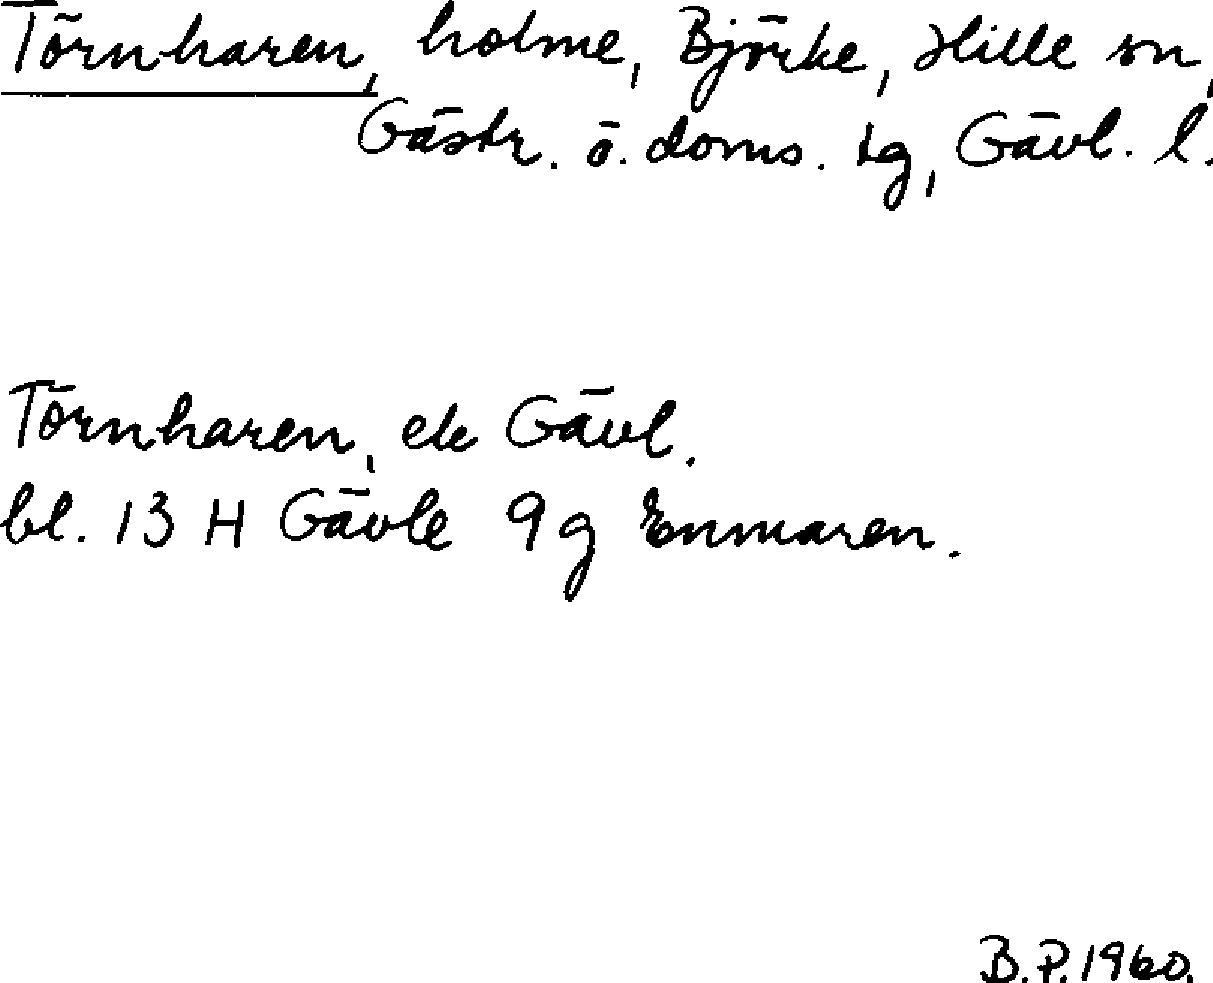 Törnharen, holme, Björke, Hille sn,
Gästr. ö. doms. tg, Gävl. l.
Törnharen, ek Gävl.
bl. 13 H Gävle 9g Enmaren.
B.P. 1960.